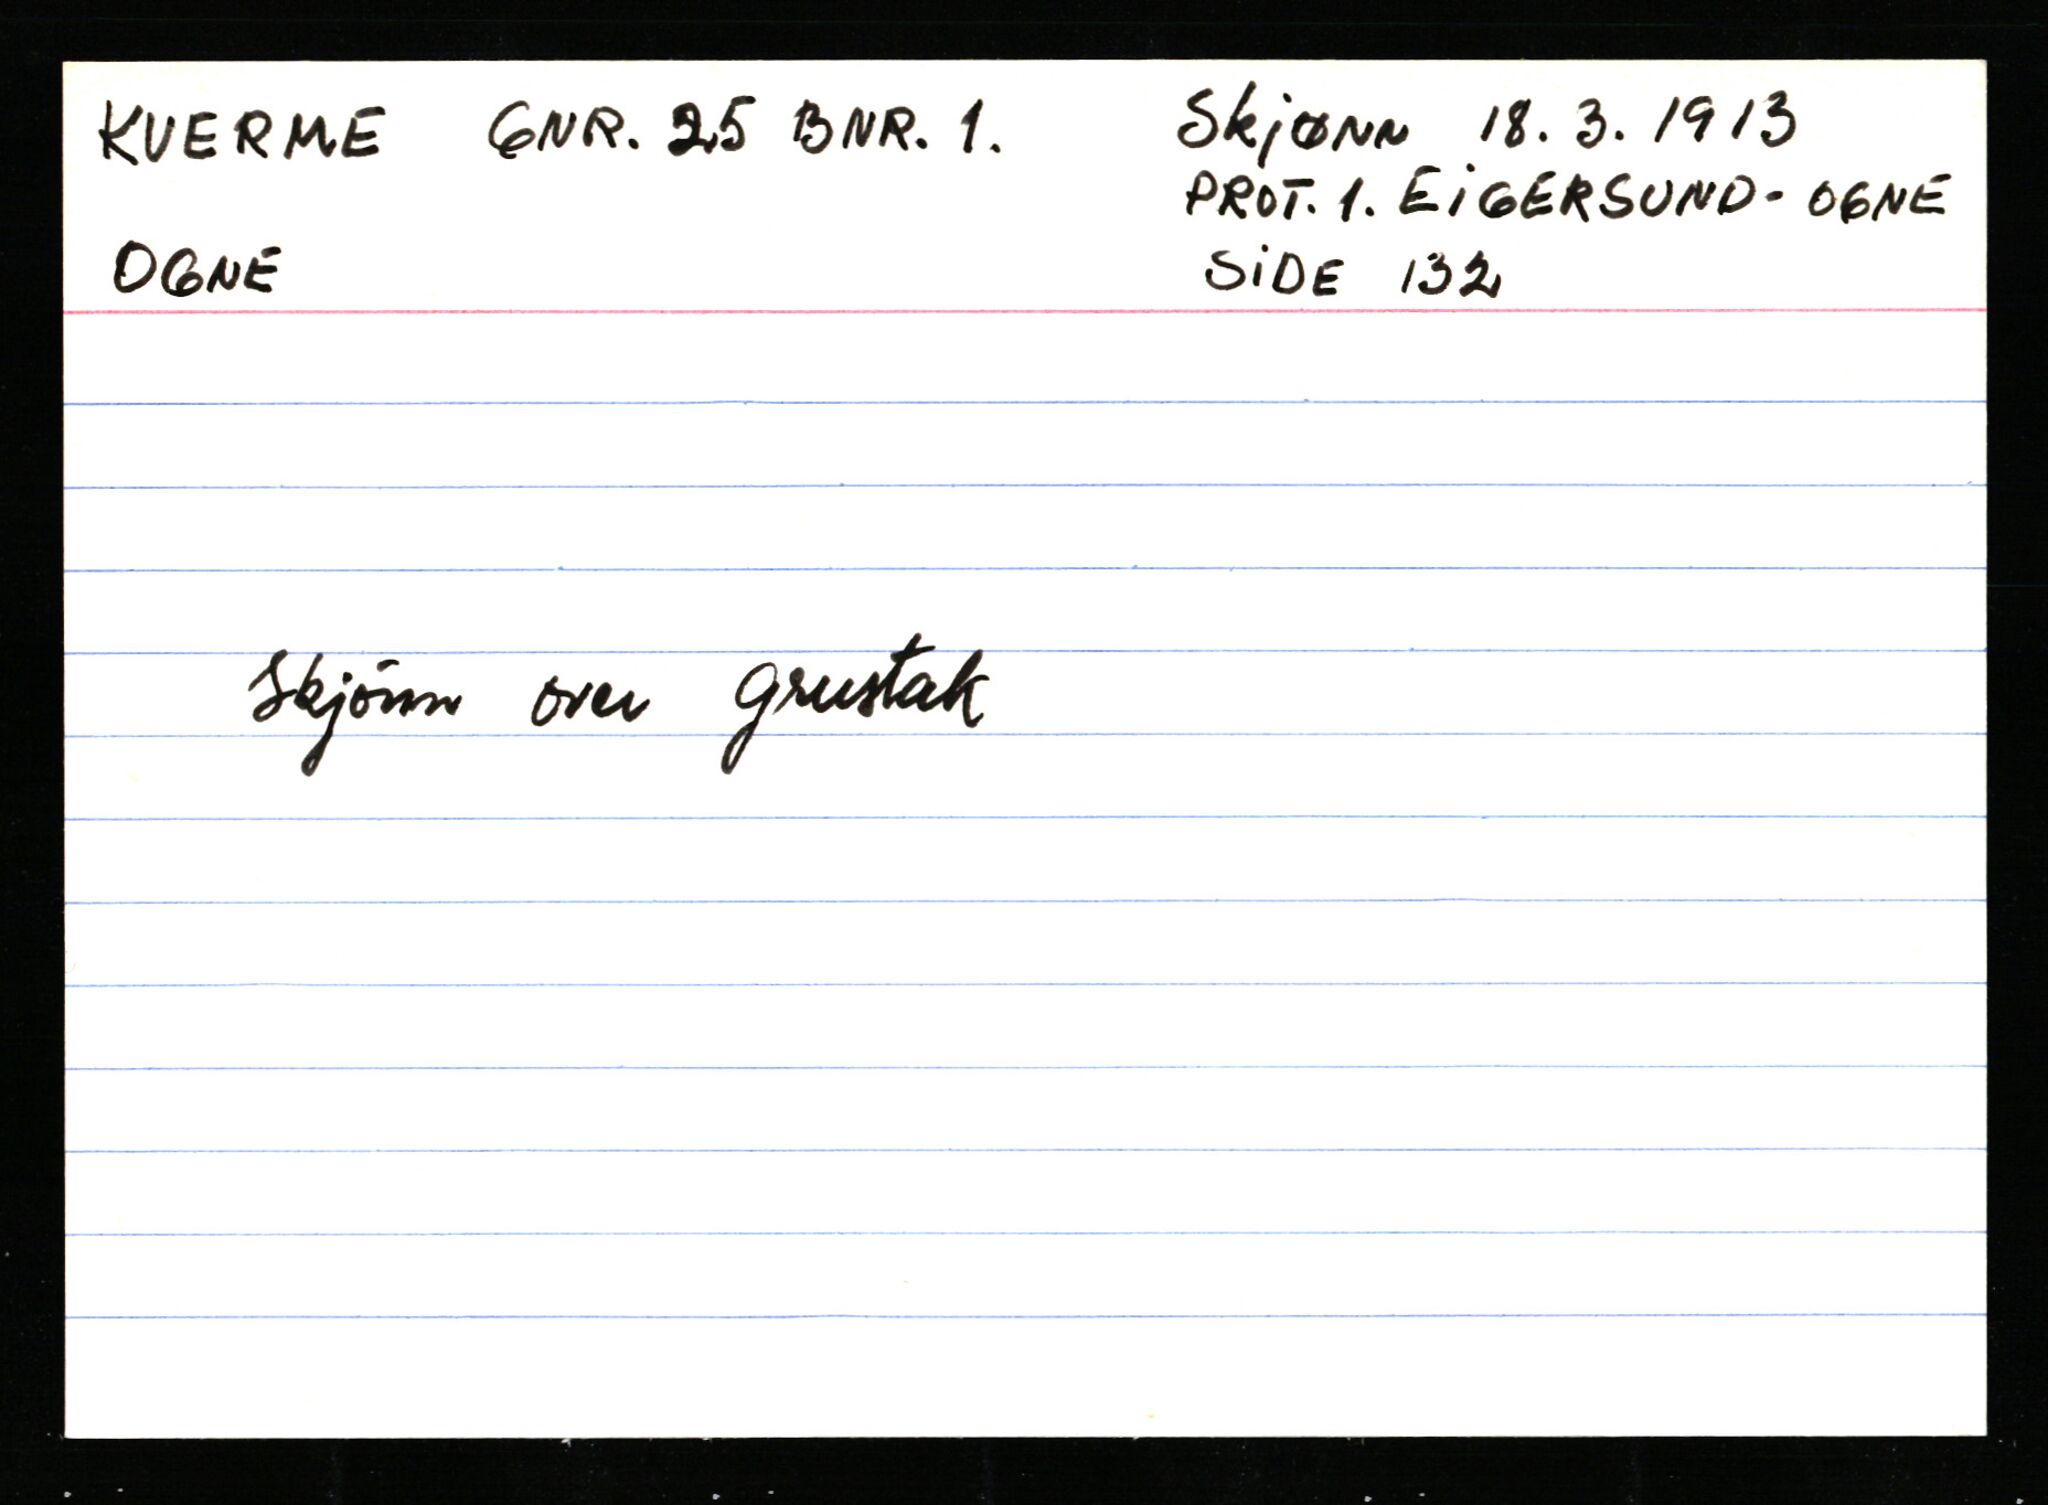 KVERME GNR. 25 BNR. 1.
OGNE
Skjønn 18. 3. 1913
PROT. 1. EiGERSUND - OGNE
SiDE 132
Skjönn over Grustak